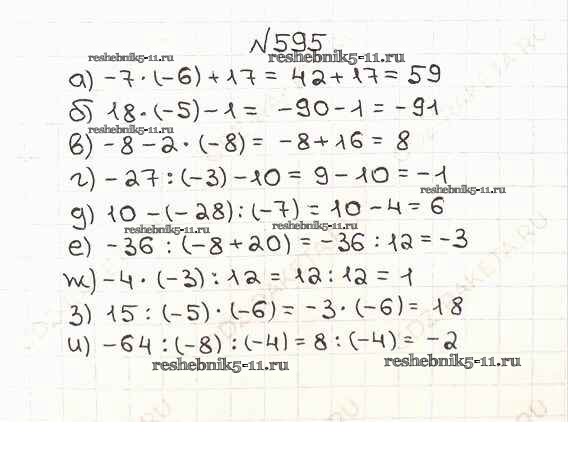 №595
reshebnik5-11.ru reshebnik5-11.ru
а) -7·(-6)+17= 42+17= 59
б) 18·(-5)-1= -90-1= -91
reshebnik5-11.ru
в) -8-2·(-8)= -8+16= 8
г) -27:(-3)-10= 9-10= -1
reshebnik5-11.ru
д) 10-(-28):(-7)= 10-4= 6
reshebnik5-11.ru reshebnik5-11.ru
е) -36:(-8+20)= -36:12= -3
ж) -4·(-3):12= 12:12= 1
з) 15:(-5)·(-6)= -3·(-6)= 18
и) -64:(-8):(-4)= 8:(-4)= -2
reshebnik5-11.ru reshebnik5-11.ru